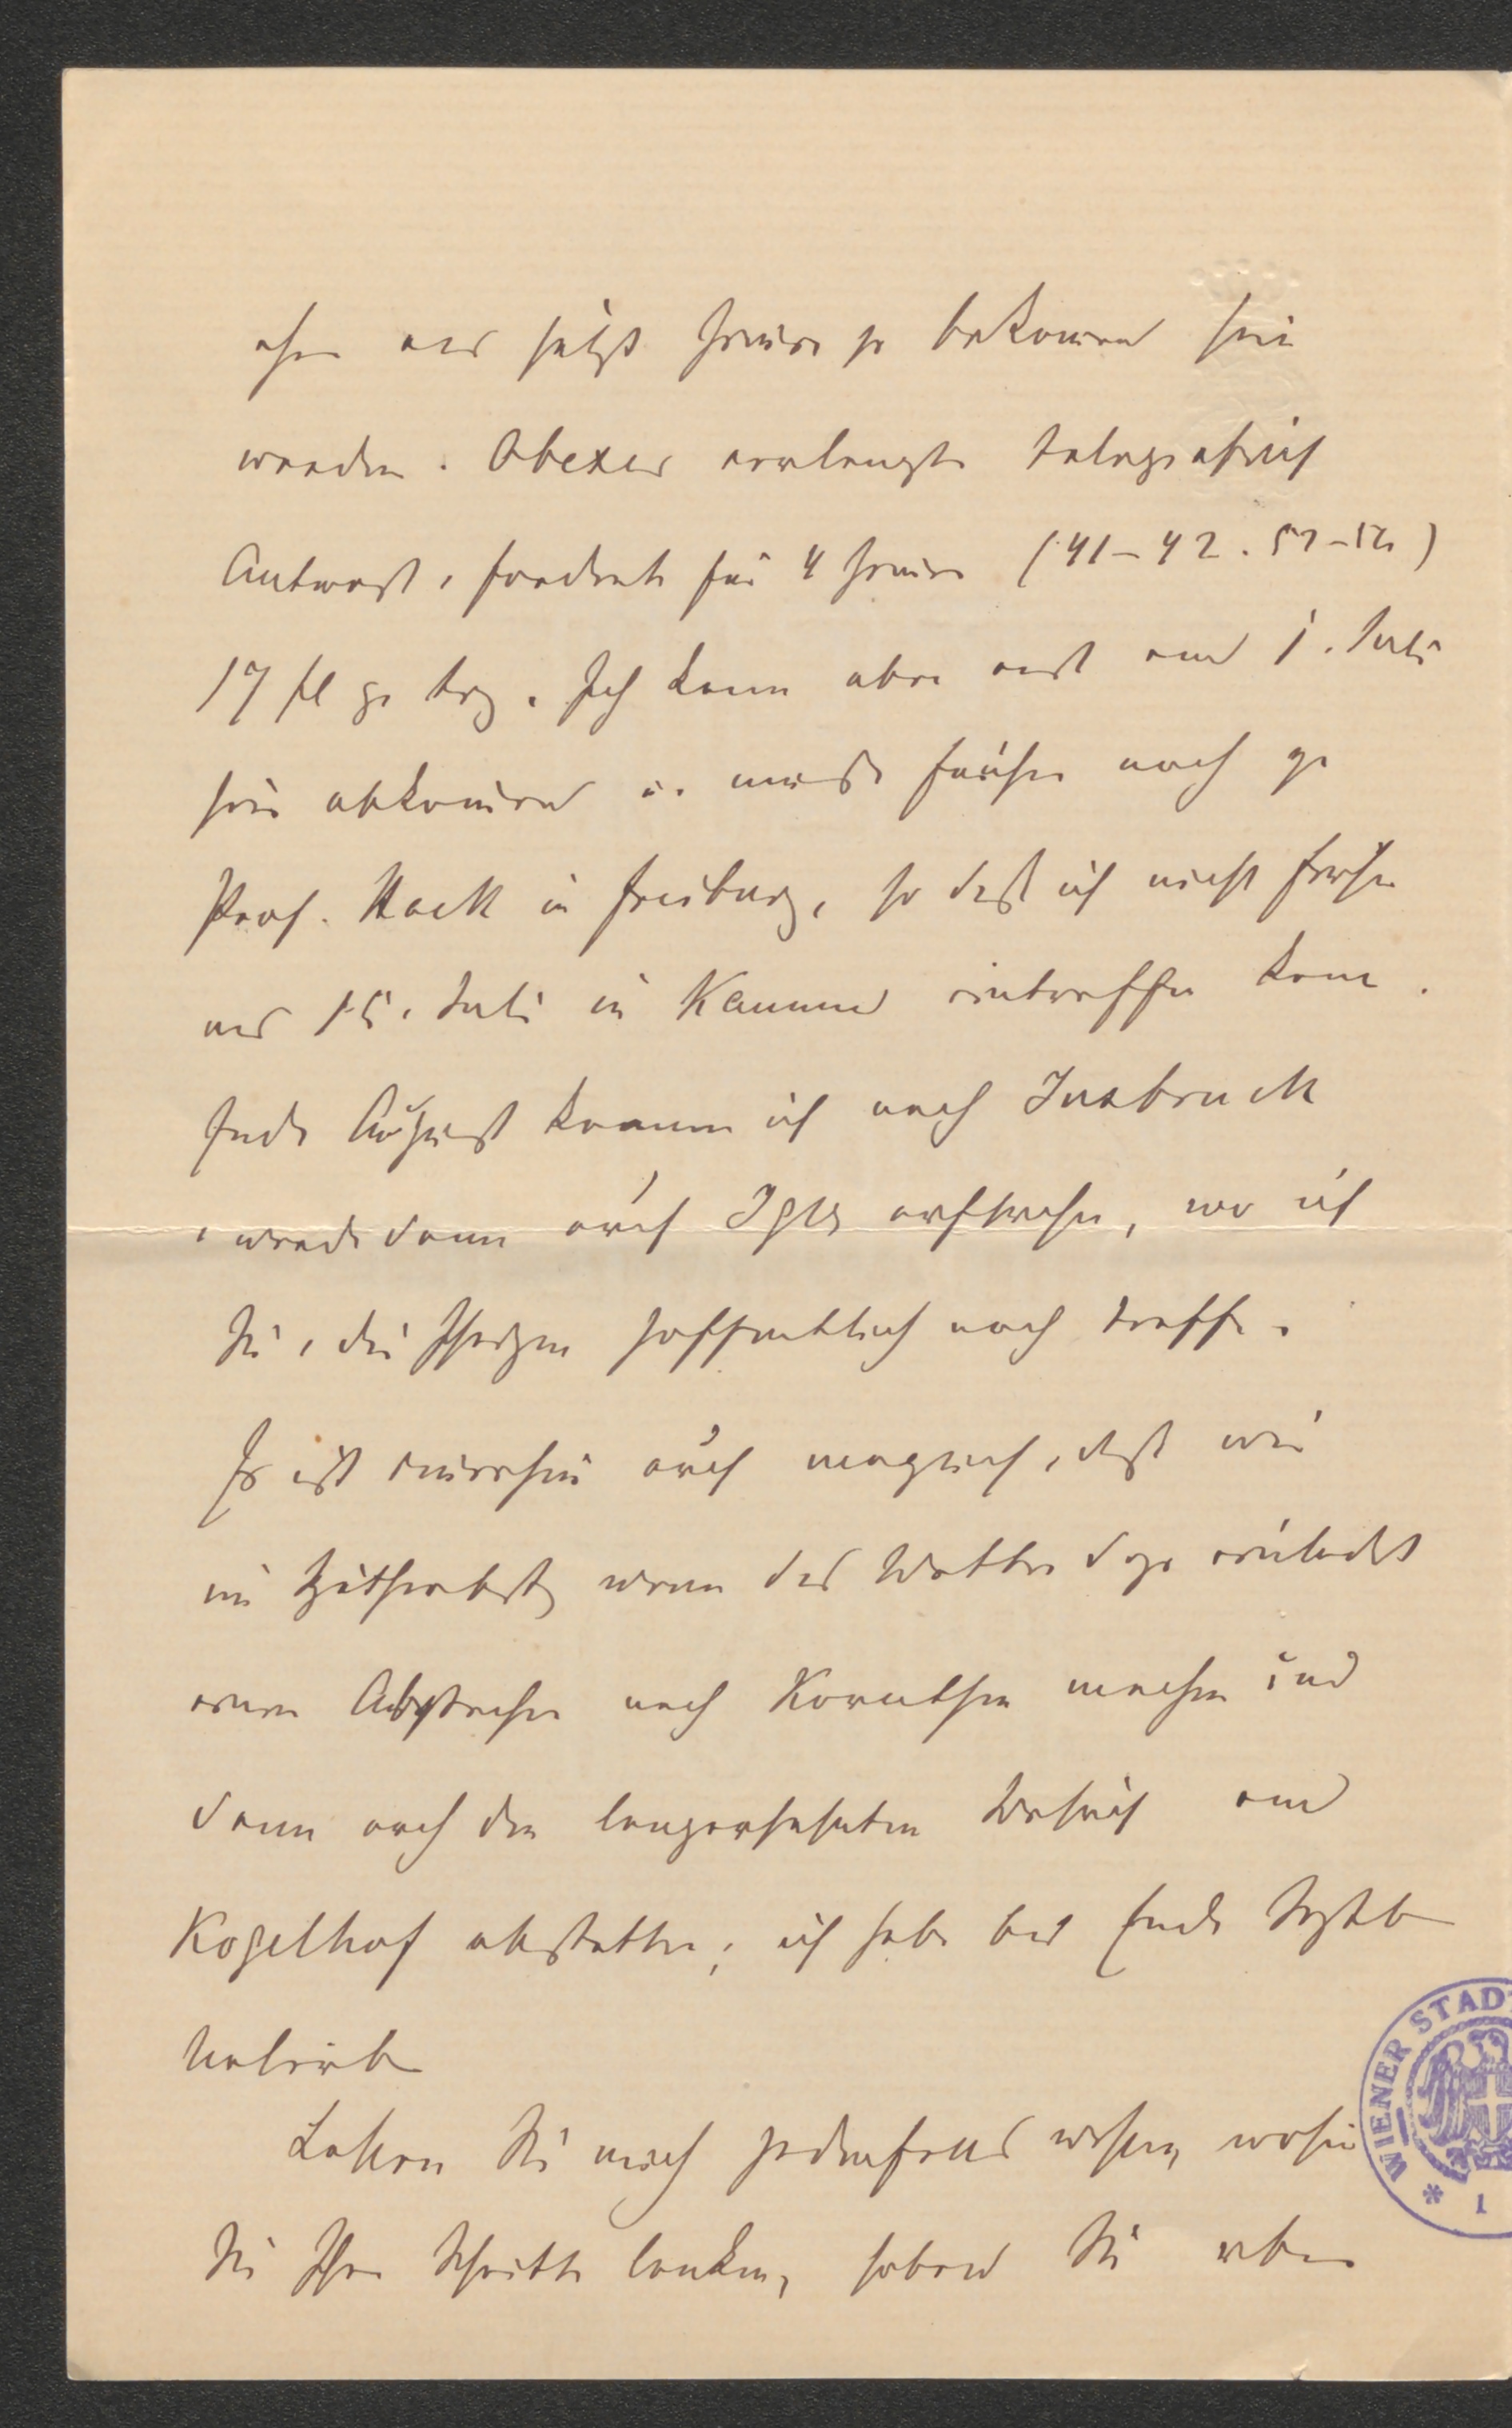 ohne erst jetzt Zimmer zu bekommen sein
werden. Obexer verlangte telegrafisch
Antwort, forderte für 4 Zimmer (41–42. 51–52)
17 fl pr Tag. Ich kann aber erst am 1. Juli
hier abkommen u. muß früher noch zu
Prof. Hack in Freiburg, so daß ich nicht früher
als 15. Juli in eintreffen kann.
Ende August komme ich nach Insbruck
, werde dann auch Igls aufsuchen, wo ich
Sie, die Ihrigen hoffentlich noch treffe.
Es ist immerhin auch möglich, daß wir
im Spätherbst, wenn das Wetter dazu einladet
einen Abstecher nach Kärnthen machen und
dann auch den langersehnten Besuch am
Kogelhof abstatten; ich habe bis Ende Septb
Urlaub
Lassen Sie mich jedenfalls wissen, wohin
Sie Ihre Schritte lenken, sobald Sie
WIENER STADT
* 1